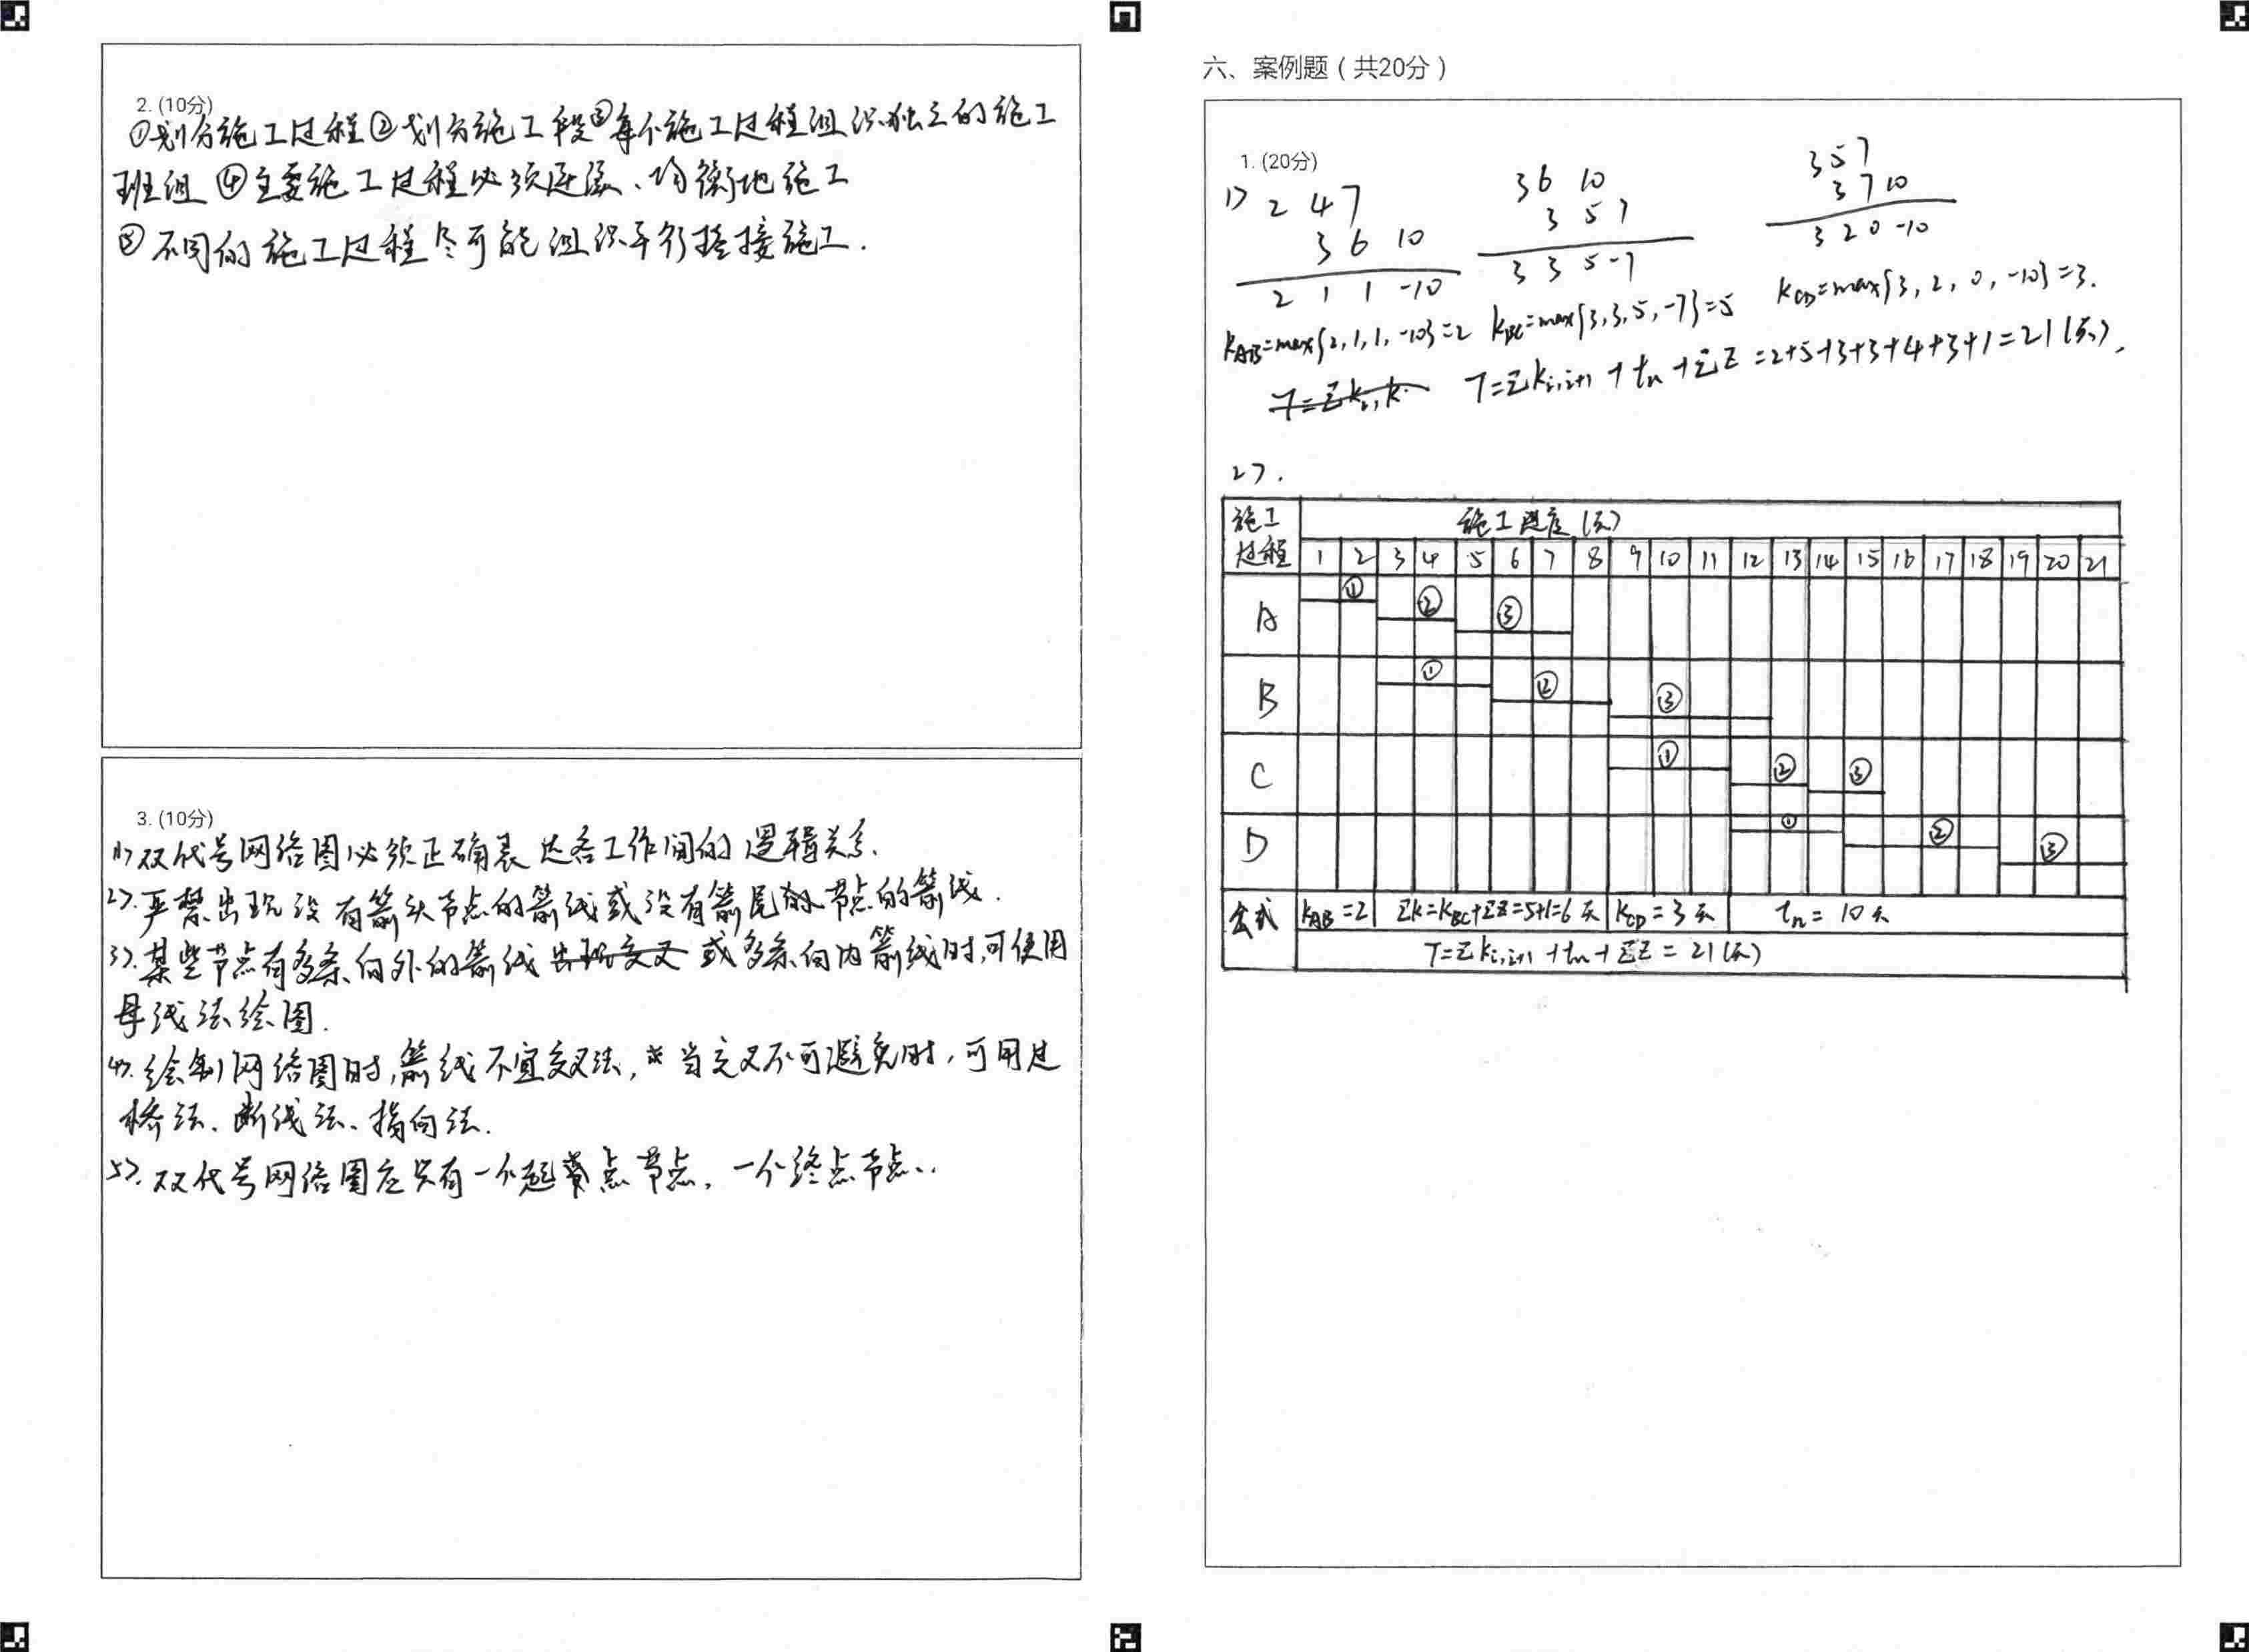 2. (10分)
①划分施工过程②划分施工段③每个施工过程组织独立的施工
班组 ④主要施工过程必须连续、均衡地施工
⑤不同的施工过程尽可能组织平行搭接施工.
3. (10分)
1>双代号网络图必须正确表达各工作间的逻辑关系.
2>.严禁出现没有箭头节点的箭线或没有箭尾的节点的箭线.
3>.某些节点有多条向外的箭线出现交叉或多条向内箭线时,可使用
母线法绘图.
4>.绘制网络图时,箭线不宜交叉法,当交叉不可避免时,可用过
桥法、断线法、指向法.
5>.双代号网络图应只有一个起点节点,一个终点节点..
六、案例题（共20分）
1. (20分)
1> 2 4 7
3 6 10
2 1 1 -10
3 6 10
3 5 7
3 3 5 -7
3 5 7
3 7 10
3 2 0 -10
KAB=max{2,1,1,-10}=2 KBC=max{3,3,5,-7}=5 KCD=max{3,2,0,-10}=3.
T=ΣKi,K T=ΣKi,i+1+tn+ΣZ=2+5+3+3+4+3+1=21(天).
2>.
施工过程 施工进度(天)
1 2 3 4 5 6 7 8 9 10 11 12 13 14 15 16 17 18 19 20 21
A ① ② ③
B ① ② ③
C ① ② ③
D ① ② ③
公式 KAB=2 ΣK=KBC+ΣZ=5+1=6天 KCD=3天 tn=10天
T=ΣKi,i+1+tn+ΣZ=21(天)